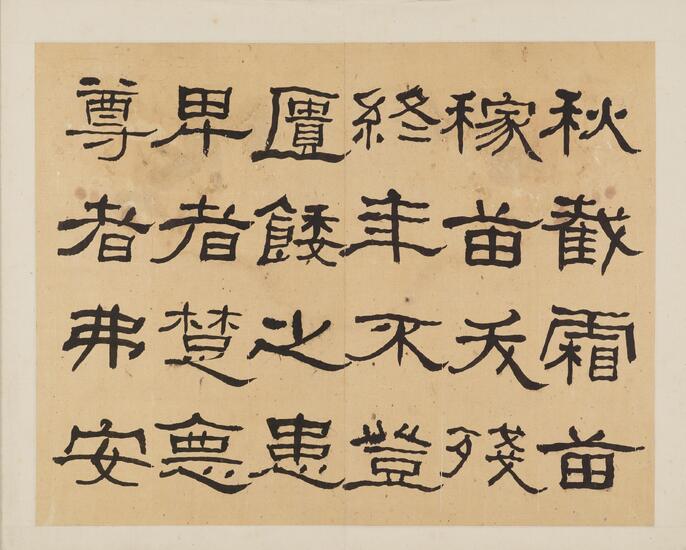 秋截霜苗
稼苗夭殘
終年不登
匱餧之患
卑者楚惡
尊者弗安